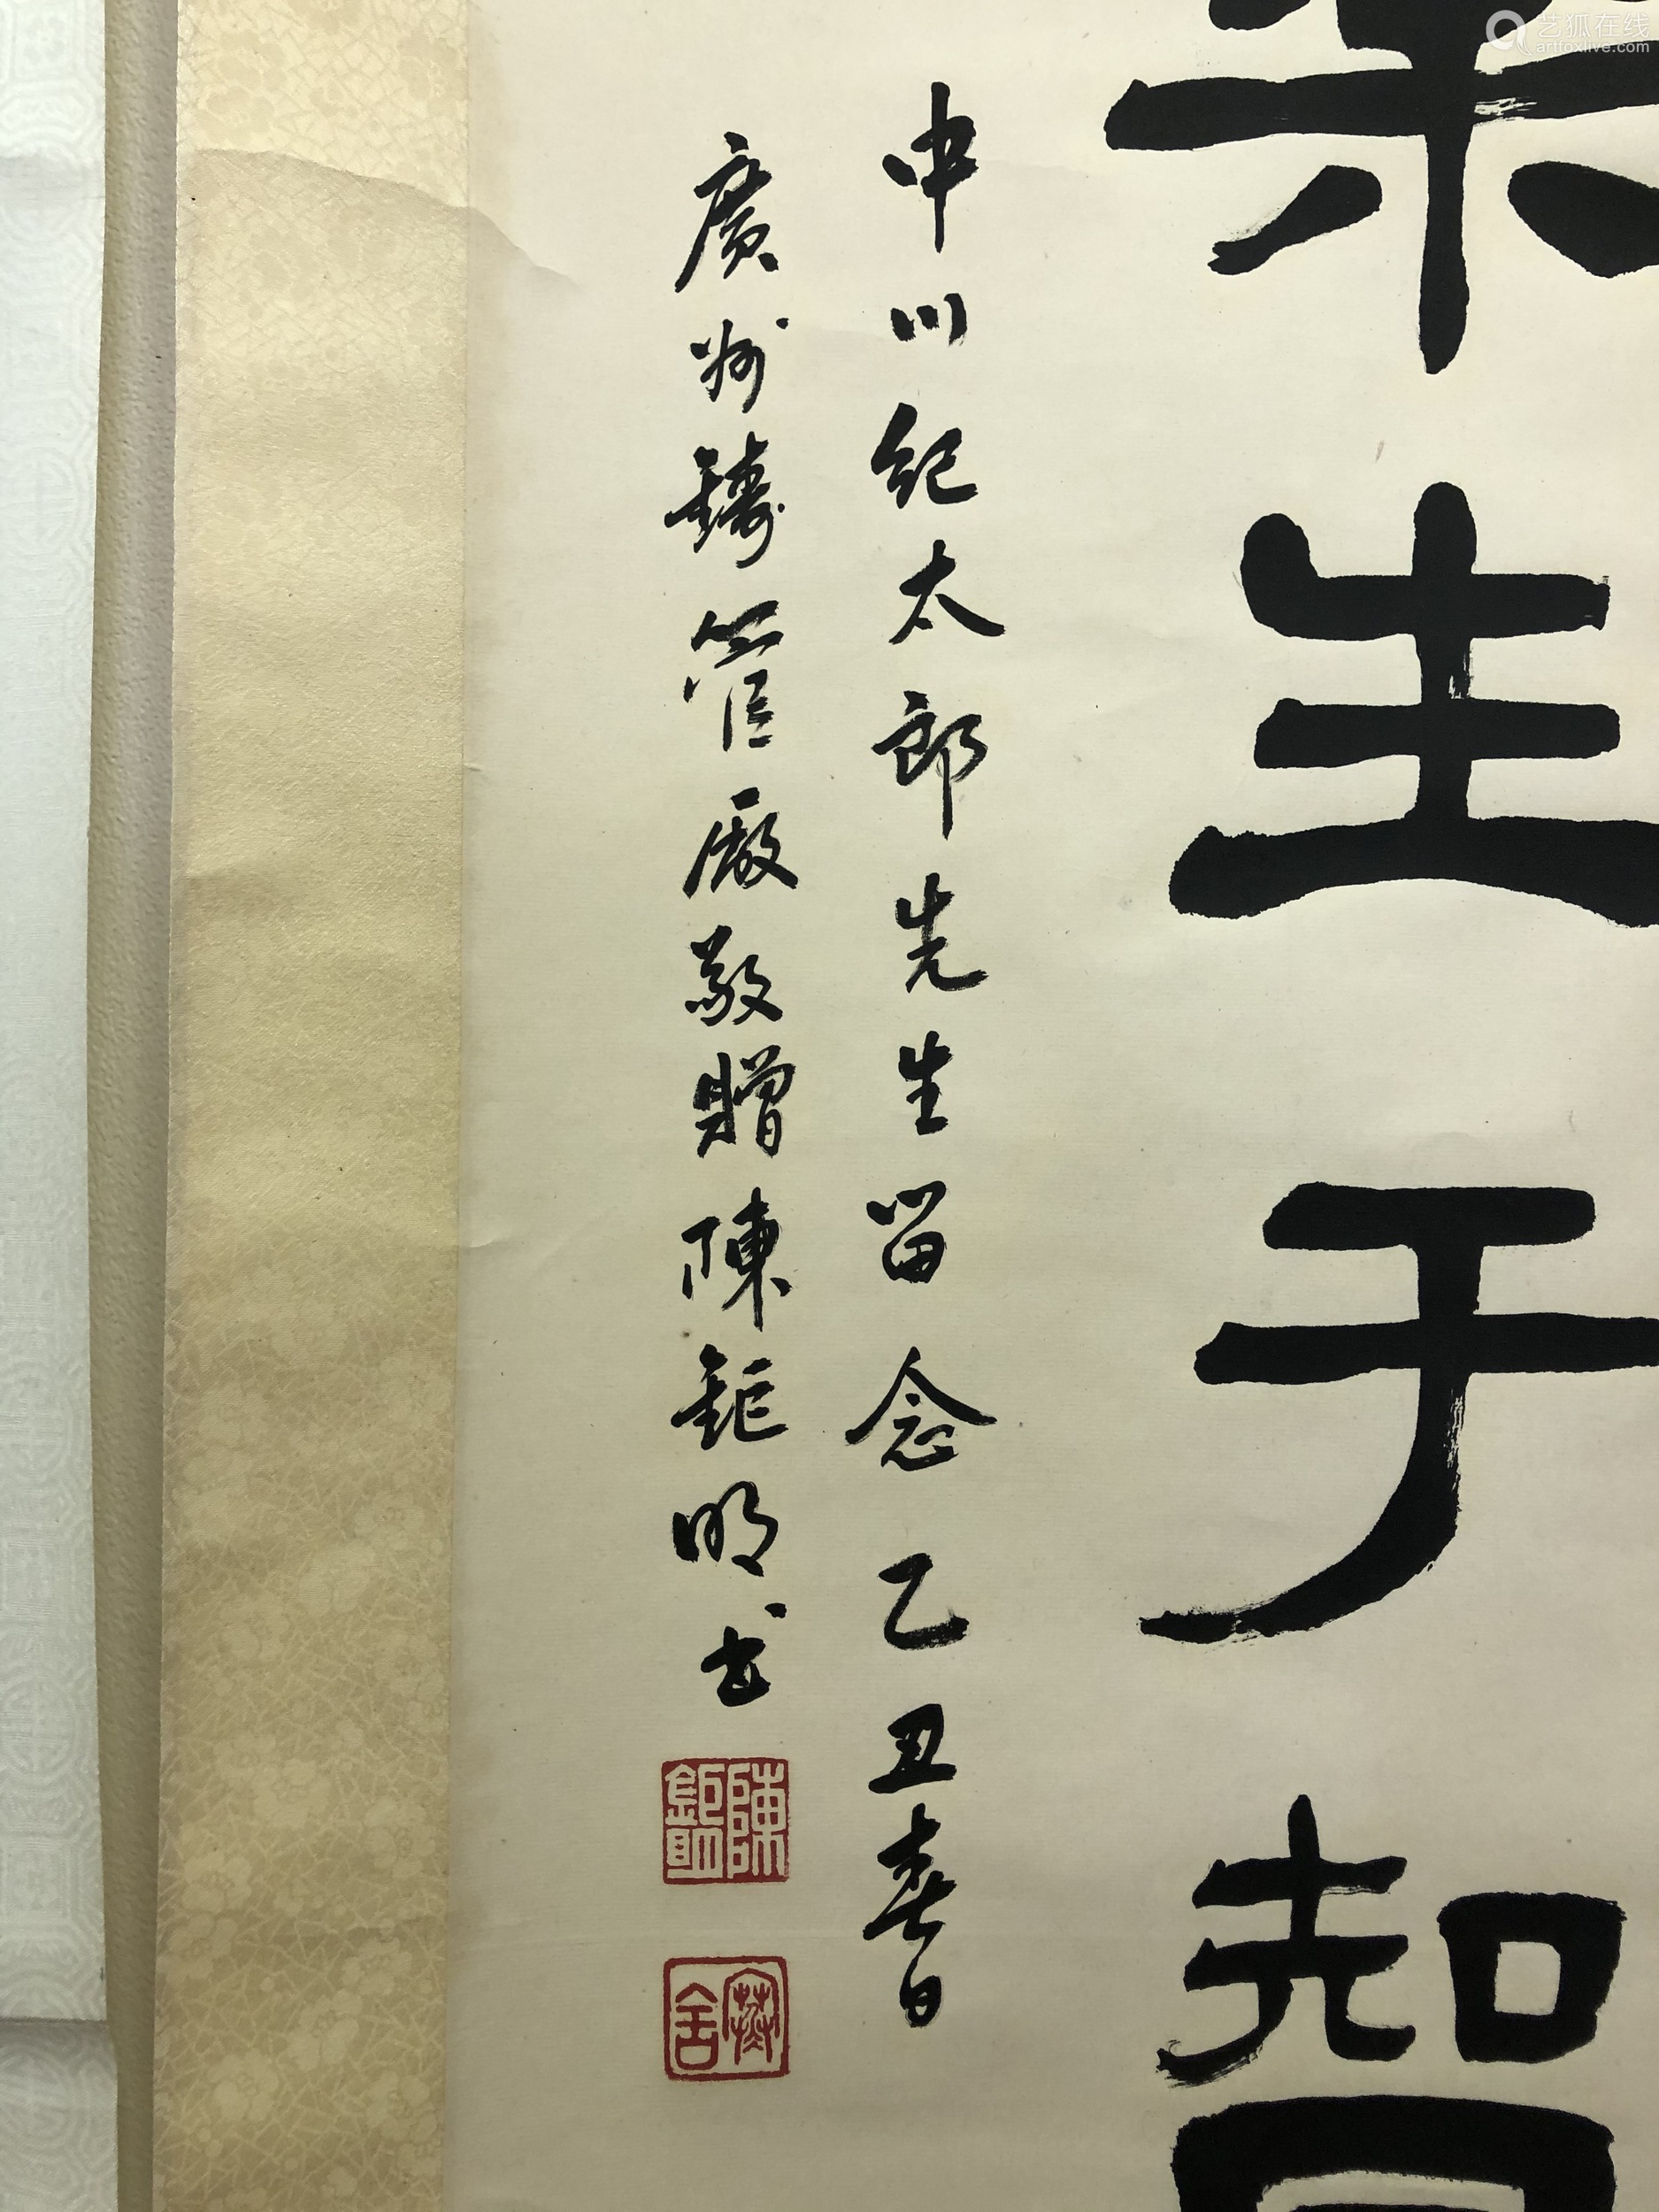 艺狐在线
artfoxlive.com
未生于智
中川紀太郎先生留念乙丑春日
廣州鑄管廠敬贈陳鉅明书
陳鉅明